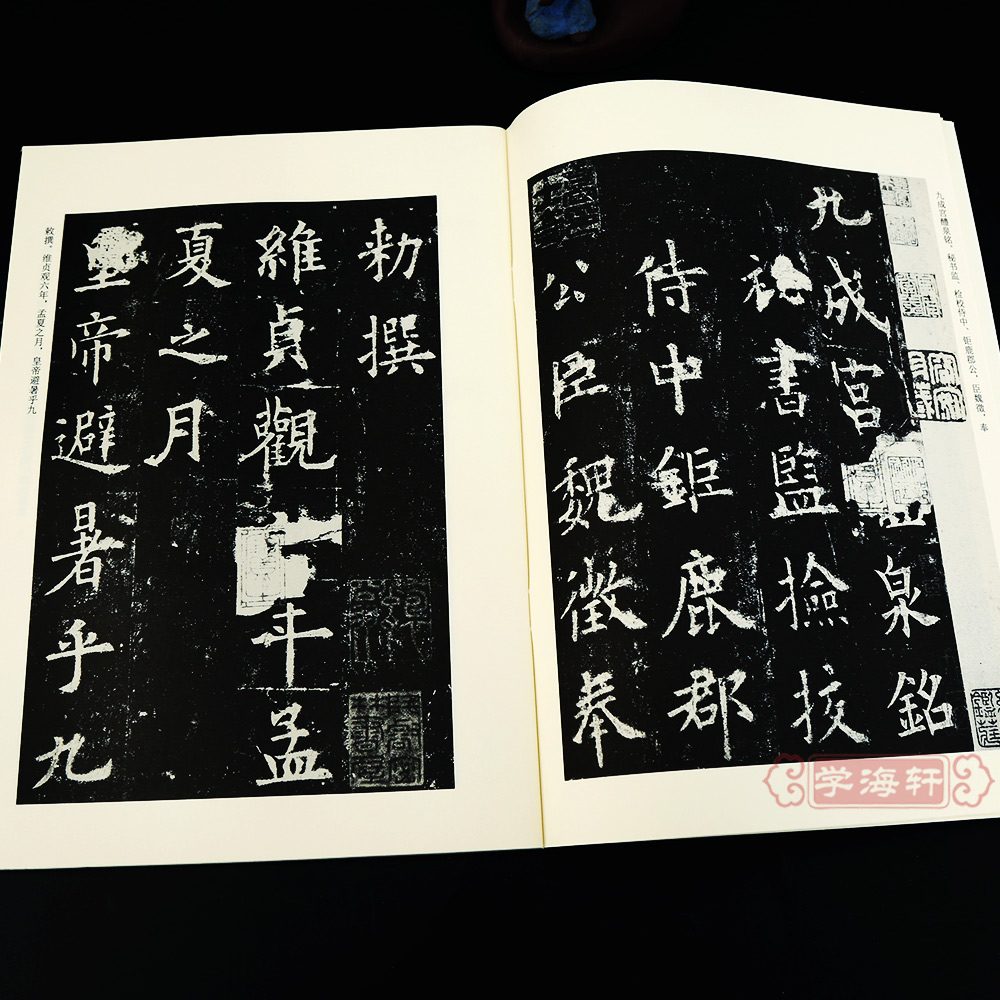 九成宫醴泉铭。秘书监、检校侍中、钜鹿郡公、臣魏徵,奉
九成宮泉銘
祕書監撿挍
侍中鉅鹿郡
公臣魏徵奉
勑撰
維貞觀年孟
夏之月
皇帝避暑乎九
敕撰。维贞观六年,孟夏之月,皇帝避暑乎九
学海轩